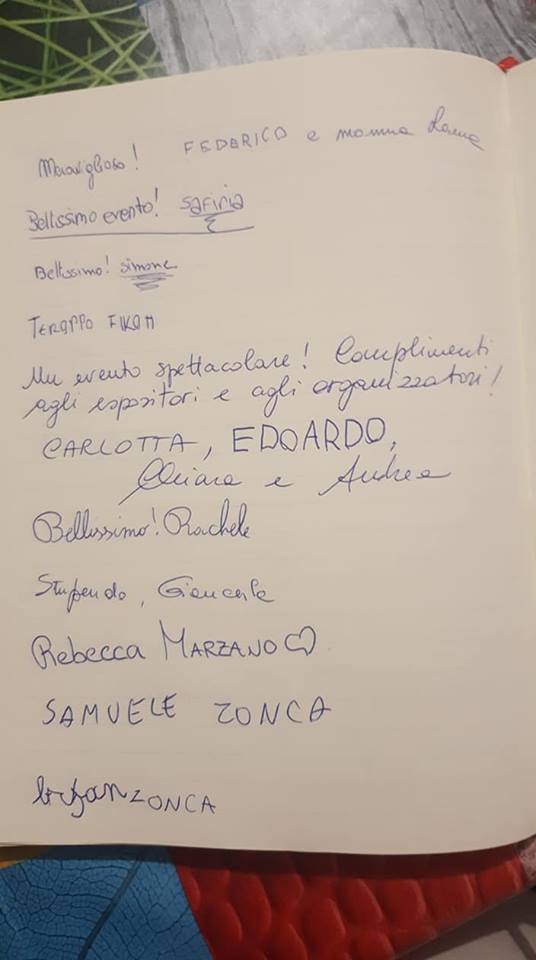 Maraviglioso! FEDERICO e mamma
Bellissimo evento! SAFIRIA
Bellissimo! simone
Un evento spettacolare! Complimenti
agli espositori e agli organizzatori!
CARLOTTA, EDOARDO,
Chiara e Andrea
Bellissimo! Rachele
Stupendo, Giancarla
Rebecca MARZANO♡
SAMUELE ZONCA
ZONCA